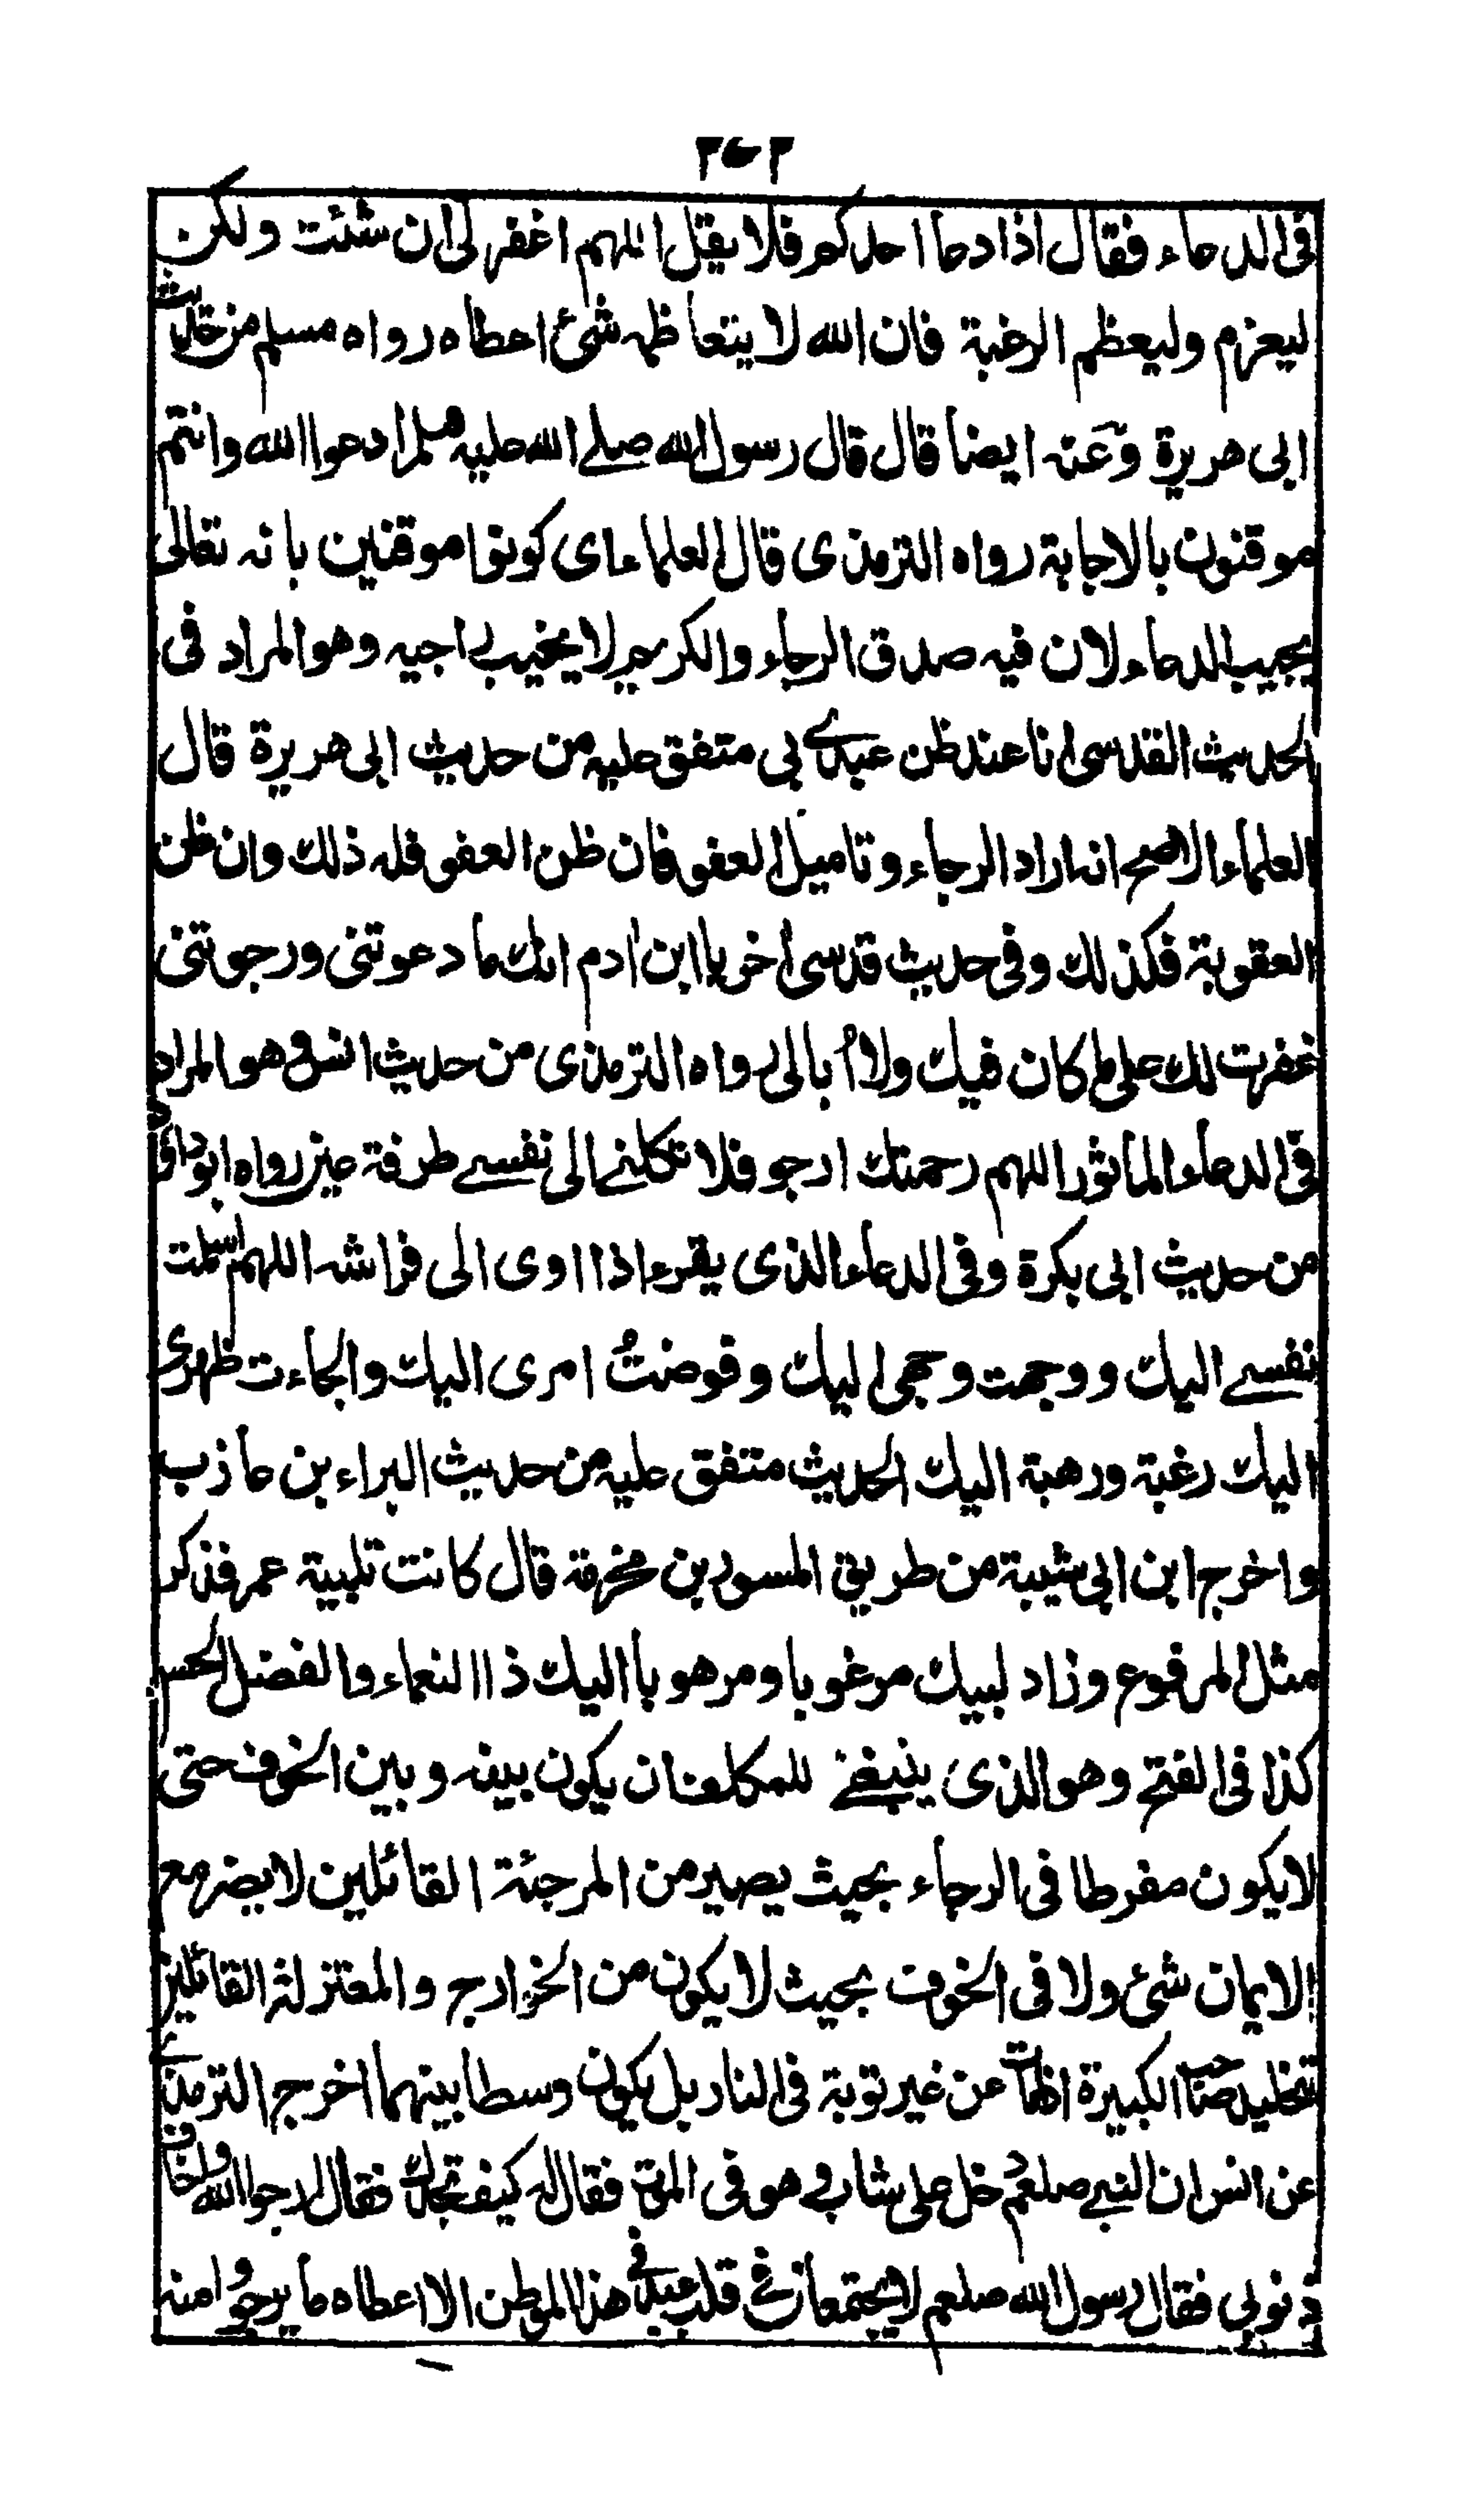 ٢٧٢
فى الدعاء فقال اذا دعا احدكم فلا يقل اللهم اغفر لى ان شئت ولكن
ليعزم وليعظم الرغبة فان الله لا يتعاظمه شئ اعطاه رواه مسلم من حديث
ابى هريرة وعنه ايضا قال قال رسول الله صلے الله عليه وسلم ادعوا الله وانتم
موقنون بالاجابة رواه الترمذى قال العلماء اى كونوا موقنين بانه تعالى
يجيب الدعاء لان فيه صدق الرجاء والكريم لا يخيب راجيه وهو المراد فى
الحديث القدسى انا عند ظن عبدى بى متفق عليه من حديث ابى هريرة قال
العلماء الاصح انه اراد الرجاء وتاميل العفو فان ظن العفو فله ذلك وان ظن
العقوبة فكذلك وفى حديث قدسى اخر يا ابن ادم انك ما دعوتنى ورجوتنى
غفرت لك على ما كان فيك ولا ابالى رواه الترمذى من حديث انس وهو المراد
فى الدعاء الماثور اللهم رحمتك ارجو فلا تكلنے الى نفسے طرفة عين رواه ابوداؤد
من حديث ابى بكرة وفى الدعاء الذى يقرء اذا اوى الى فراشه اللهم اسلمت
نفسے اليك ووجهت وجهى اليك وفوضت امرى اليك والجاءت ظهرى
اليك رغبة ورهبة اليك الحديث متفق عليه من حديث البراء بن عازب
واخرج ابن ابى شيبة من طريق المسور بن مخرمة قال كانت تلبية عمر فذكر
مثل المرفوع وزاد لبيك مرغوبا ومرهوبا اليك ذا النعماء والفضل الحسن
كذا فى الفتح وهو الذى ينبغے للمكلف ان يكون بينه وبين الخوف حتى
لا يكون مفرطا فى الرجاء بحيث يصير من المرجئة القائلين لا يضر مع
الايمان شئ ولا فى الخوف بحيث لا يكون من الخوارج والمعتزلة القائلين
تخليد صاحب الكبيرة اذا مات عن غير توبة فى النار بل يكون وسطا بينهما اخرج الترمذى
عن انس ان النبے صلعم دخل على شاب وهو فى الموت فقال له كيف تجدك فقال ارجوا الله واخاف
ذنوبى فقال رسول الله صلعم لا يجتمعان فى قلب عبد فى هذا الموطن الا اعطاه ما يرجوا منه